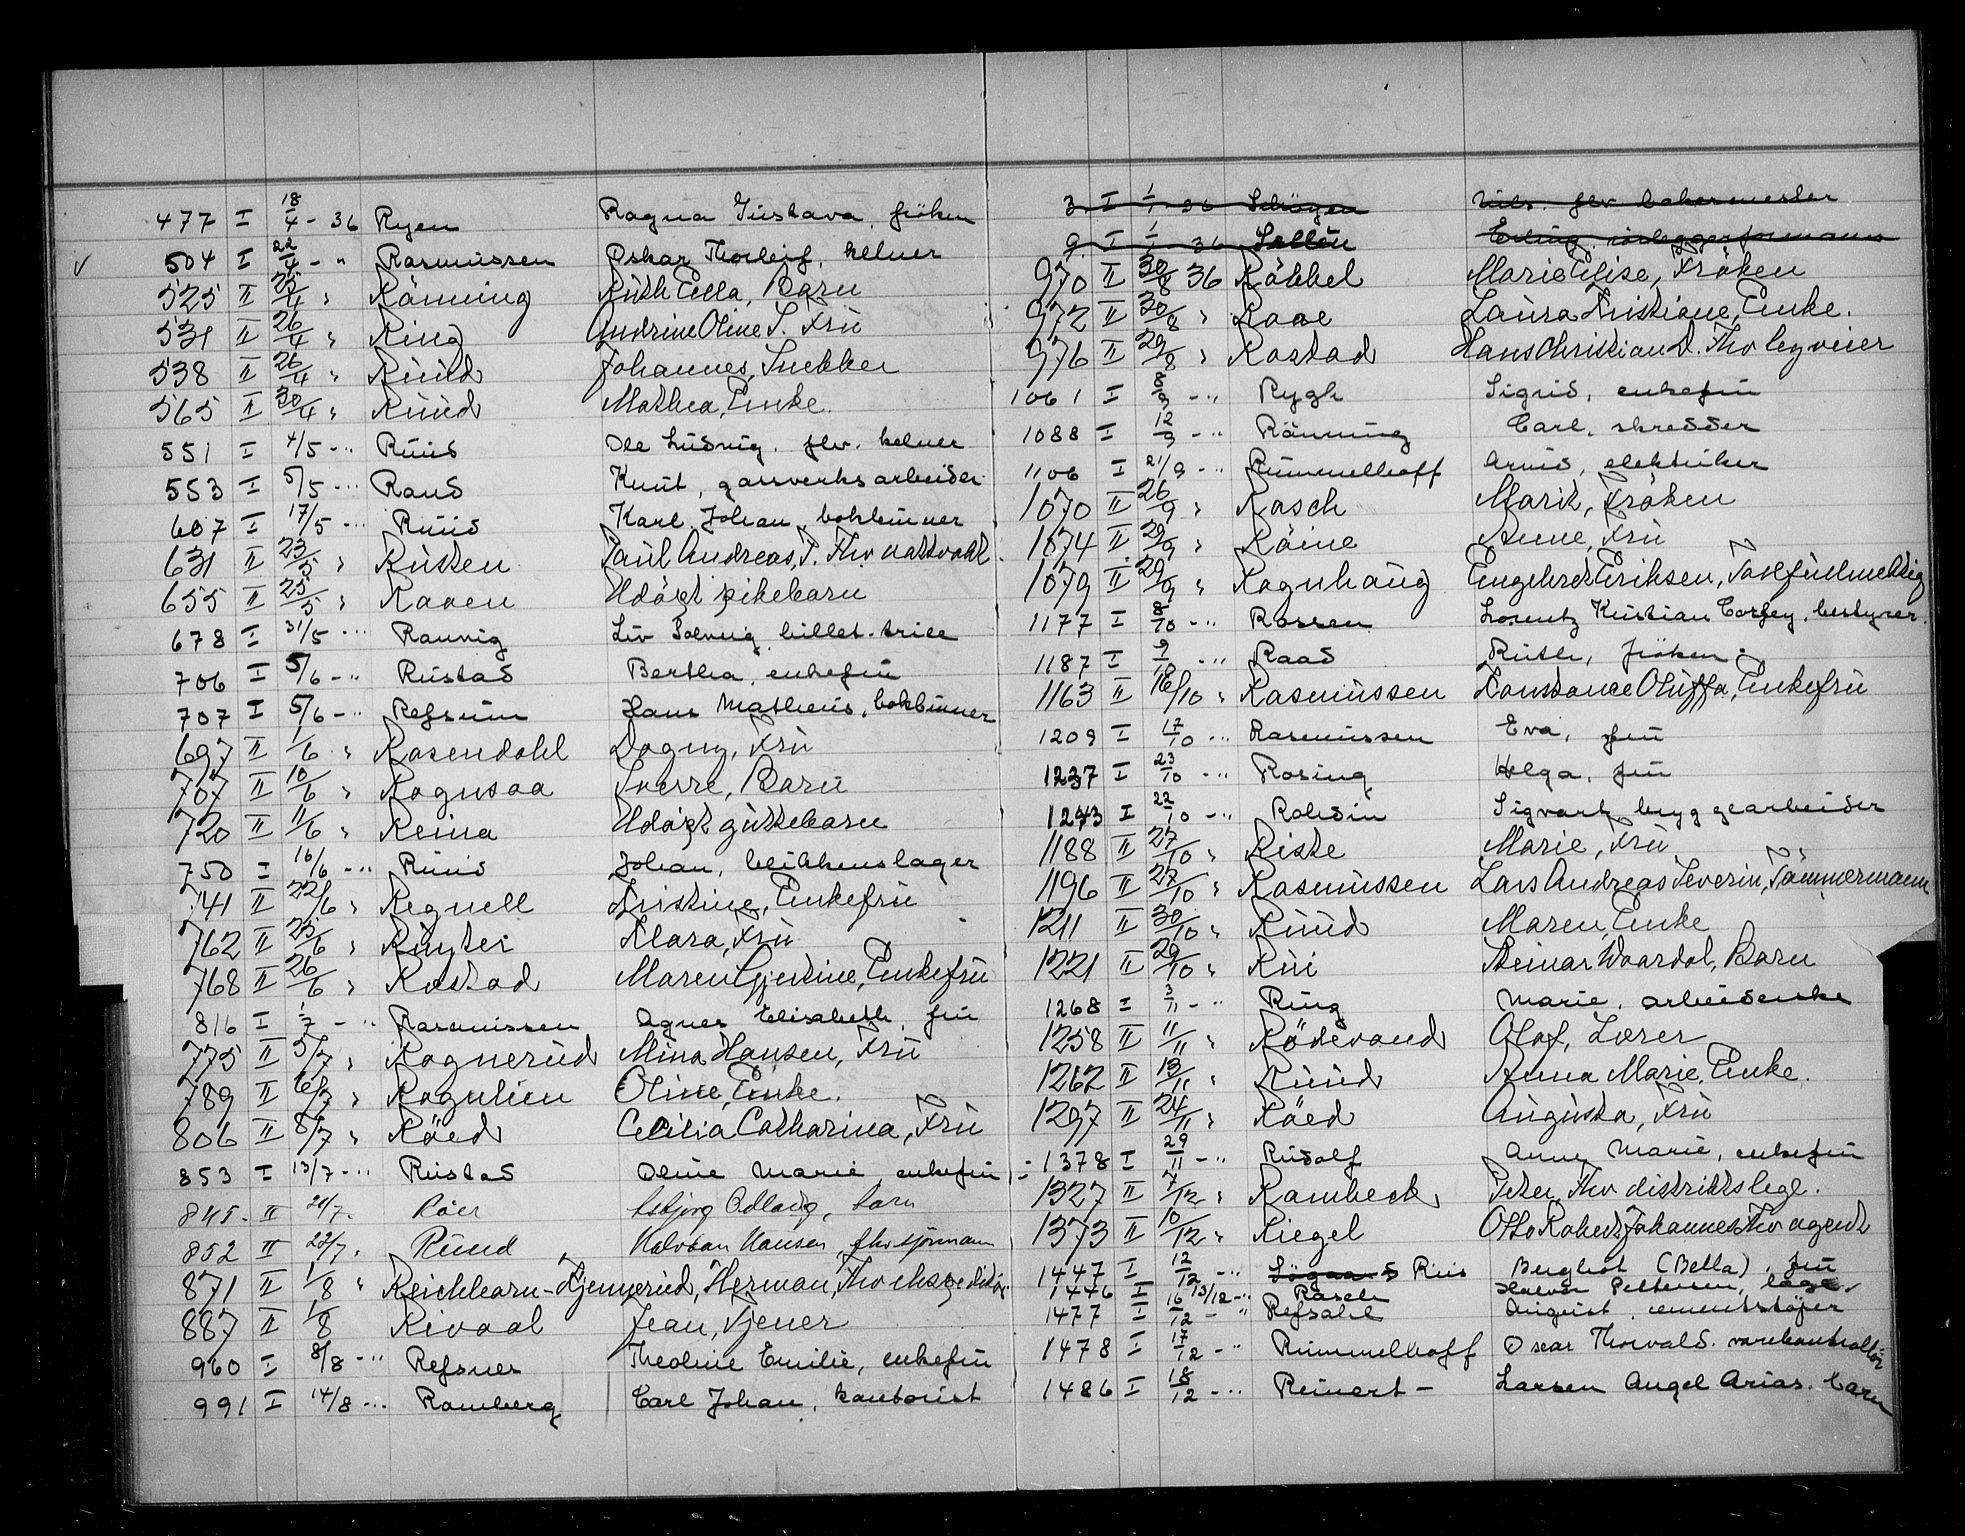 477 I 18/4 - 36 Ryen Ragna Gustava, fröken
504 I 22/4 - " Rasmussen Oskar Thorleif, kelner
525 II 25/4 " Rönning Ruth Ella, Barn
531 II 26/4 " Ring Andrine Oline S. Fru
538 II 26/4 " Ruud Johannes, Snekker
565 II 30/4 " Ruud Mathea, Enke.
551 I 4/5 - " Ruud Ole Ludvig, flv. kelner
553 I 5/5 - " Raud Knut, gassverksarbeider
607 I 17/5 - " Ruud Karl Johan, bokbinner
631 II 23/5 " Rusten Paul Andreas, P. Fhv nattvakt.
655 II 25/5 " Raaen Udöpt pikebarn
678 I 31/5 - " Rannig Liv Solveig billet-trise
706 I 5/6 - " Rustad Bertha, enkefru
707 I 5/6 - " Refsum Hans Matheus, bokbinner
697 II 1/6 " Rosendahl Dagny, Fru
707 II 10/6 " Rognsaa Sverre, Barn
720 II 11/6 " Reina Udöpt guttebarn
750 I 16/6 - " Ruud Johan, blikkenslager
741 II 22/6 " Regnell Kristine, Enkefru
762 II 25/6 " Ruyter Klara, Fru
768 II 26/6 " Rostad Maren Gjertine, Enkefru
816 I 1/7 - " Rasmussen Agnes Elisabeth, fru
775 II 5/7 " Rognerud Mina Hansen, Fru
789 II 6/7 " Rognlien Oline, Enke.
806 II 8/7 " Röed Cecilia Catharina, Fru
853 I 13/7 - " Rustad Oline Marie, enkefru
845. II 21/7. Röer Asbjörg Odlaug, barn
852 II 22/7. Ruud Halvdan Hansen, fhv sjömann
871 II 1/8 " Reichborn-Kjennerud, Herman, Fhv ekspeditör
887 II 1/8 Rivoal Jean, Tjener
960 I 8/8 - " Refsnes Theoline Emilie, enkefru
991 I 14/8 - " Ramberg Carl Johan, kontorist
3 I 1/1 36 Schöyen Nils, flv. bakermester
9 I 1/1 36 Sellén Erling, rörleggerformann
970 II 30/8 36 Röbbel Marie Elise, Fröken
972 II 30/8 " Roae Laura Kristiane, Enke.
976 II 29/8 " Rostad Hans Christian D. Fhv byveier
1061 I 8/9 - " Rygh Sigrid, enkefru
1088 I 12/9 - " Rönning Carl, skredder
1106 I 21/9 - " Rummelhoff Arvid, elektriker
1070 II 26/9 " Rasch Marit, Fröken
1074 II 29/9 " Röine Anne, Fru
1079 II 29/9 " Rognhaug Engebret Eriksen, Tollfullmektig
1177 I 8/10 - " Rossen Lorentz Kristian Corfey, bestyrer.
1187 I 9/10 - " Raad Ruth, fröken
1163 II 16/10 " Rasmussen Konstance Oluffa, Enkefru
1209 I 17/10 - " Rasmussen Eva, fru
1237 I 23/10 - " Rosing Helga, fru
1243 I 22/10 - " Rohdin Sigvart, bryggearbeider
1188 II 27/10 " Riste Marie, Fru
1196 II 27/10 " Rasmussen Lars Andreas Severin, Tömmermann
1211 II 30/10 " Ruud Maren, Enke
1221 II 29/10 " Rui Steinar Waardal, Barn
1268 I 3/11 - " Ring Marie, arbeiderske
1258 II 11/11 " Rödevand Olaf, Lærer
1262 II 13/11 " Ruud Anna Marie, Enke.
1297 II 24/11 " Röed Augusta, Fru
1378 I 29/11 - " Rudolf Anny Marie, enkefru
1327 II 7/12 " Rambeck Peter, Fhv distriktslege.
1373 II 10/12 " Riegel Otto Robert Johannes Fhv agent
1447 I 12/12 - " Sögaard Riis Bergliot (Bella), fru
1446 I 13/12 - " Rasch Halvor Pettersen, læge
1477 I 16/12 - " Refsahl August, sementstöper
1478 I 17/12 - " Rummelhoff Oscar Thorvald. varekontrollör
1486 I 18/12 - " Reinert - Larsen Angel Arias. barn